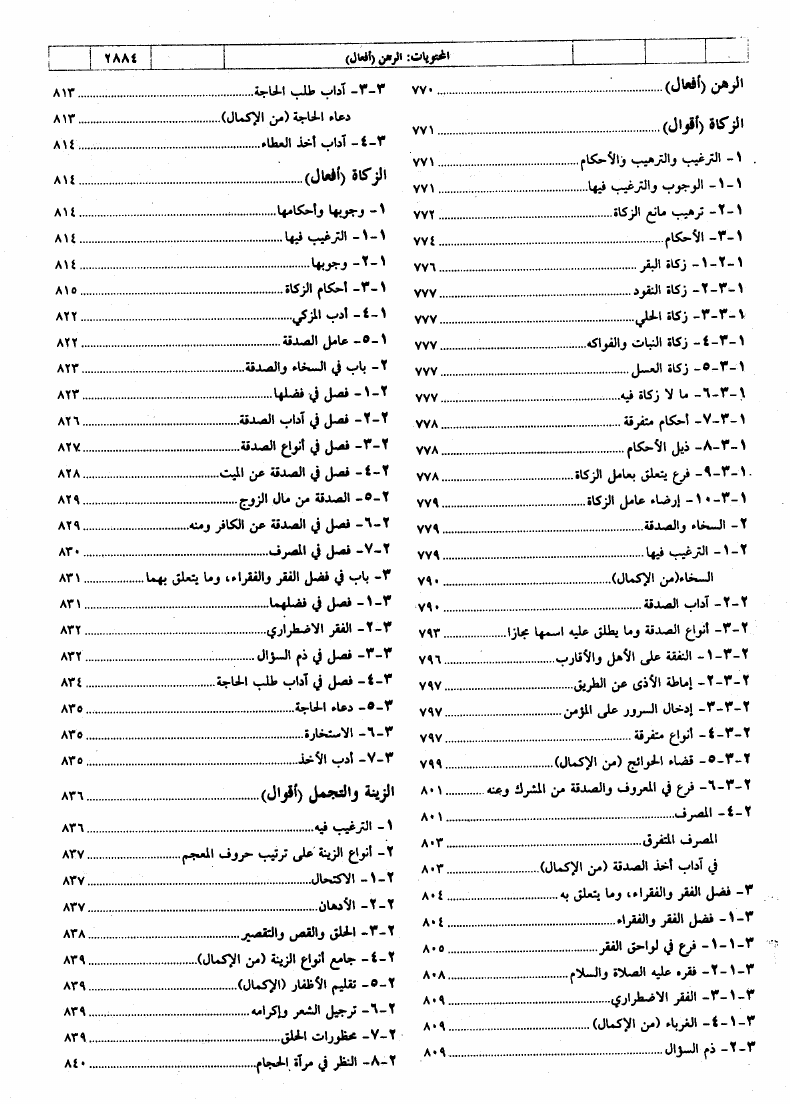 المحتويات: الرهن (أفعال) ٢٨٨٤
الرهن (أفعال) ٧٧٠
الزكاة (أقوال) ٧٧١
١- الترغيب والترهيب والأحكام ٧٧١
١-١- الوجوب والترغيب فيها ٧٧١
١-٢- ترهيب مانع الزكاة ٧٧٢
١-٣- الأحكام ٧٧٤
١-٢-١- زكاة البقر ٧٧٦
١-٣-٢- زكاة النقود ٧٧٧
١-٣-٣- زكاة الحلي ٧٧٧
١-٣-٤- زكاة النبات والفواكه ٧٧٧
١-٣-٥- زكاة العسل ٧٧٧
١-٣-٦- ما لا زكاة فيه ٧٧٧
١-٣-٧- أحكام متفرقة ٧٧٨
١-٣-٨- ذيل الأحكام ٧٧٨
١-٣-٩- فرع يتعلق بعامل الزكاة ٧٧٨
١-٣-١٠- إرضاء عامل الزكاة ٧٧٩
٢- السخاء والصدقة ٧٧٩
٢-١- الترغيب فيها ٧٧٩
السخاء(من الإكمال) ٧٩٠
٢-٢- آداب الصدقة ٧٩٠
٢-٣- أنواع الصدقة وما يطلق عليه اسمها مجازا ٧٩٣
٢-٣-١- النفقة على الأهل والأقارب ٧٩٦
٢-٣-٢- إماطة الأذى عن الطريق ٧٩٧
٢-٣-٣- إدخال السرور على المؤمن ٧٩٧
٢-٣-٤- أنواع متفرقة ٧٩٧
٢-٣-٥- قضاء الحوائج (من الإكمال) ٧٩٩
٢-٣-٦- فرع في المعروف والصدقة من المشرك وعنه ٨٠١
٢-٤- المصرف ٨٠١
المصرف المتفرق ٨٠٣
في آداب أخذ الصدقة (من الإكمال) ٨٠٣
٣- فضل الفقر والفقراء، وما يتعلق به ٨٠٤
٣-١- فضل الفقر والفقراء ٨٠٤
٣-١-١- فرع في لواحق الفقر ٨٠٥
٣-١-٢- فقره عليه الصلاة والسلام ٨٠٨
٣-١-٣- الفقر الاضطراري ٨٠٩
٣-١-٤- الغرباء (من الإكمال) ٨٠٩
٣-٢- ذم السؤال ٨٠٩
٣-٣- آداب طلب الحاجة ٨١٣
دعاء الحاجة (من الإكمال) ٨١٣
٣-٤- آداب أخذ العطاء ٨١٤
الزكاة (أفعال) ٨١٤
١- وجوبها وأحكامها ٨١٤
١-١- الترغيب فيها ٨١٤
١-٢- وجوبها ٨١٤
١-٣- أحكام الزكاة ٨١٥
١-٤- أدب المزكي ٨٢٢
١-٥- عامل الصدقة ٨٢٢
٢- باب في السخاء والصدقة ٨٢٣
٢-١- فصل في فضلها ٨٢٣
٢-٢- فصل في آداب الصدقة ٨٢٦
٢-٣- فصل في أنواع الصدقة ٨٢٧
٢-٤- فصل في الصدقة عن الميت ٨٢٨
٢-٥- الصدقة من مال الزوج ٨٢٩
٢-٦- فصل في الصدقة عن الكافر ومنه ٨٢٩
٢-٧- فصل في المصرف ٨٣٠
٣- باب في فضل الفقر والفقراء، وما يتعلق بهما ٨٣١
٣-١- فصل في فضلهما ٨٣١
٣-٢- الفقر الاضطراري ٨٣٢
٣-٣- فصل في ذم السؤال ٨٣٢
٣-٤- فصل في آداب طلب الحاجة ٨٣٤
٣-٥- دعاء الحاجة ٨٣٥
٣-٦- الاستخارة ٨٣٥
٣-٧- أدب الأخذ ٨٣٥
الزينة والتجمل (أقوال) ٨٣٦
١- الترغيب فيه ٨٣٦
٢- أنواع الزينة على ترتيب حروف المعجم ٨٣٧
٢-١- الاكتحال ٨٣٧
٢-٢- الأدهان ٨٣٧
٢-٣- الحلق والقص والتقصير ٨٣٨
٢-٤- جامع أنواع الزينة (من الإكمال) ٨٣٩
٢-٥- تقليم الأظفار (الإكمال) ٨٣٩
٢-٦- ترجيل الشعر وإكرامه ٨٣٩
٢-٧- محظورات الحلق ٨٣٩
٢-٨- النظر في مرآة الحجام ٨٤٠